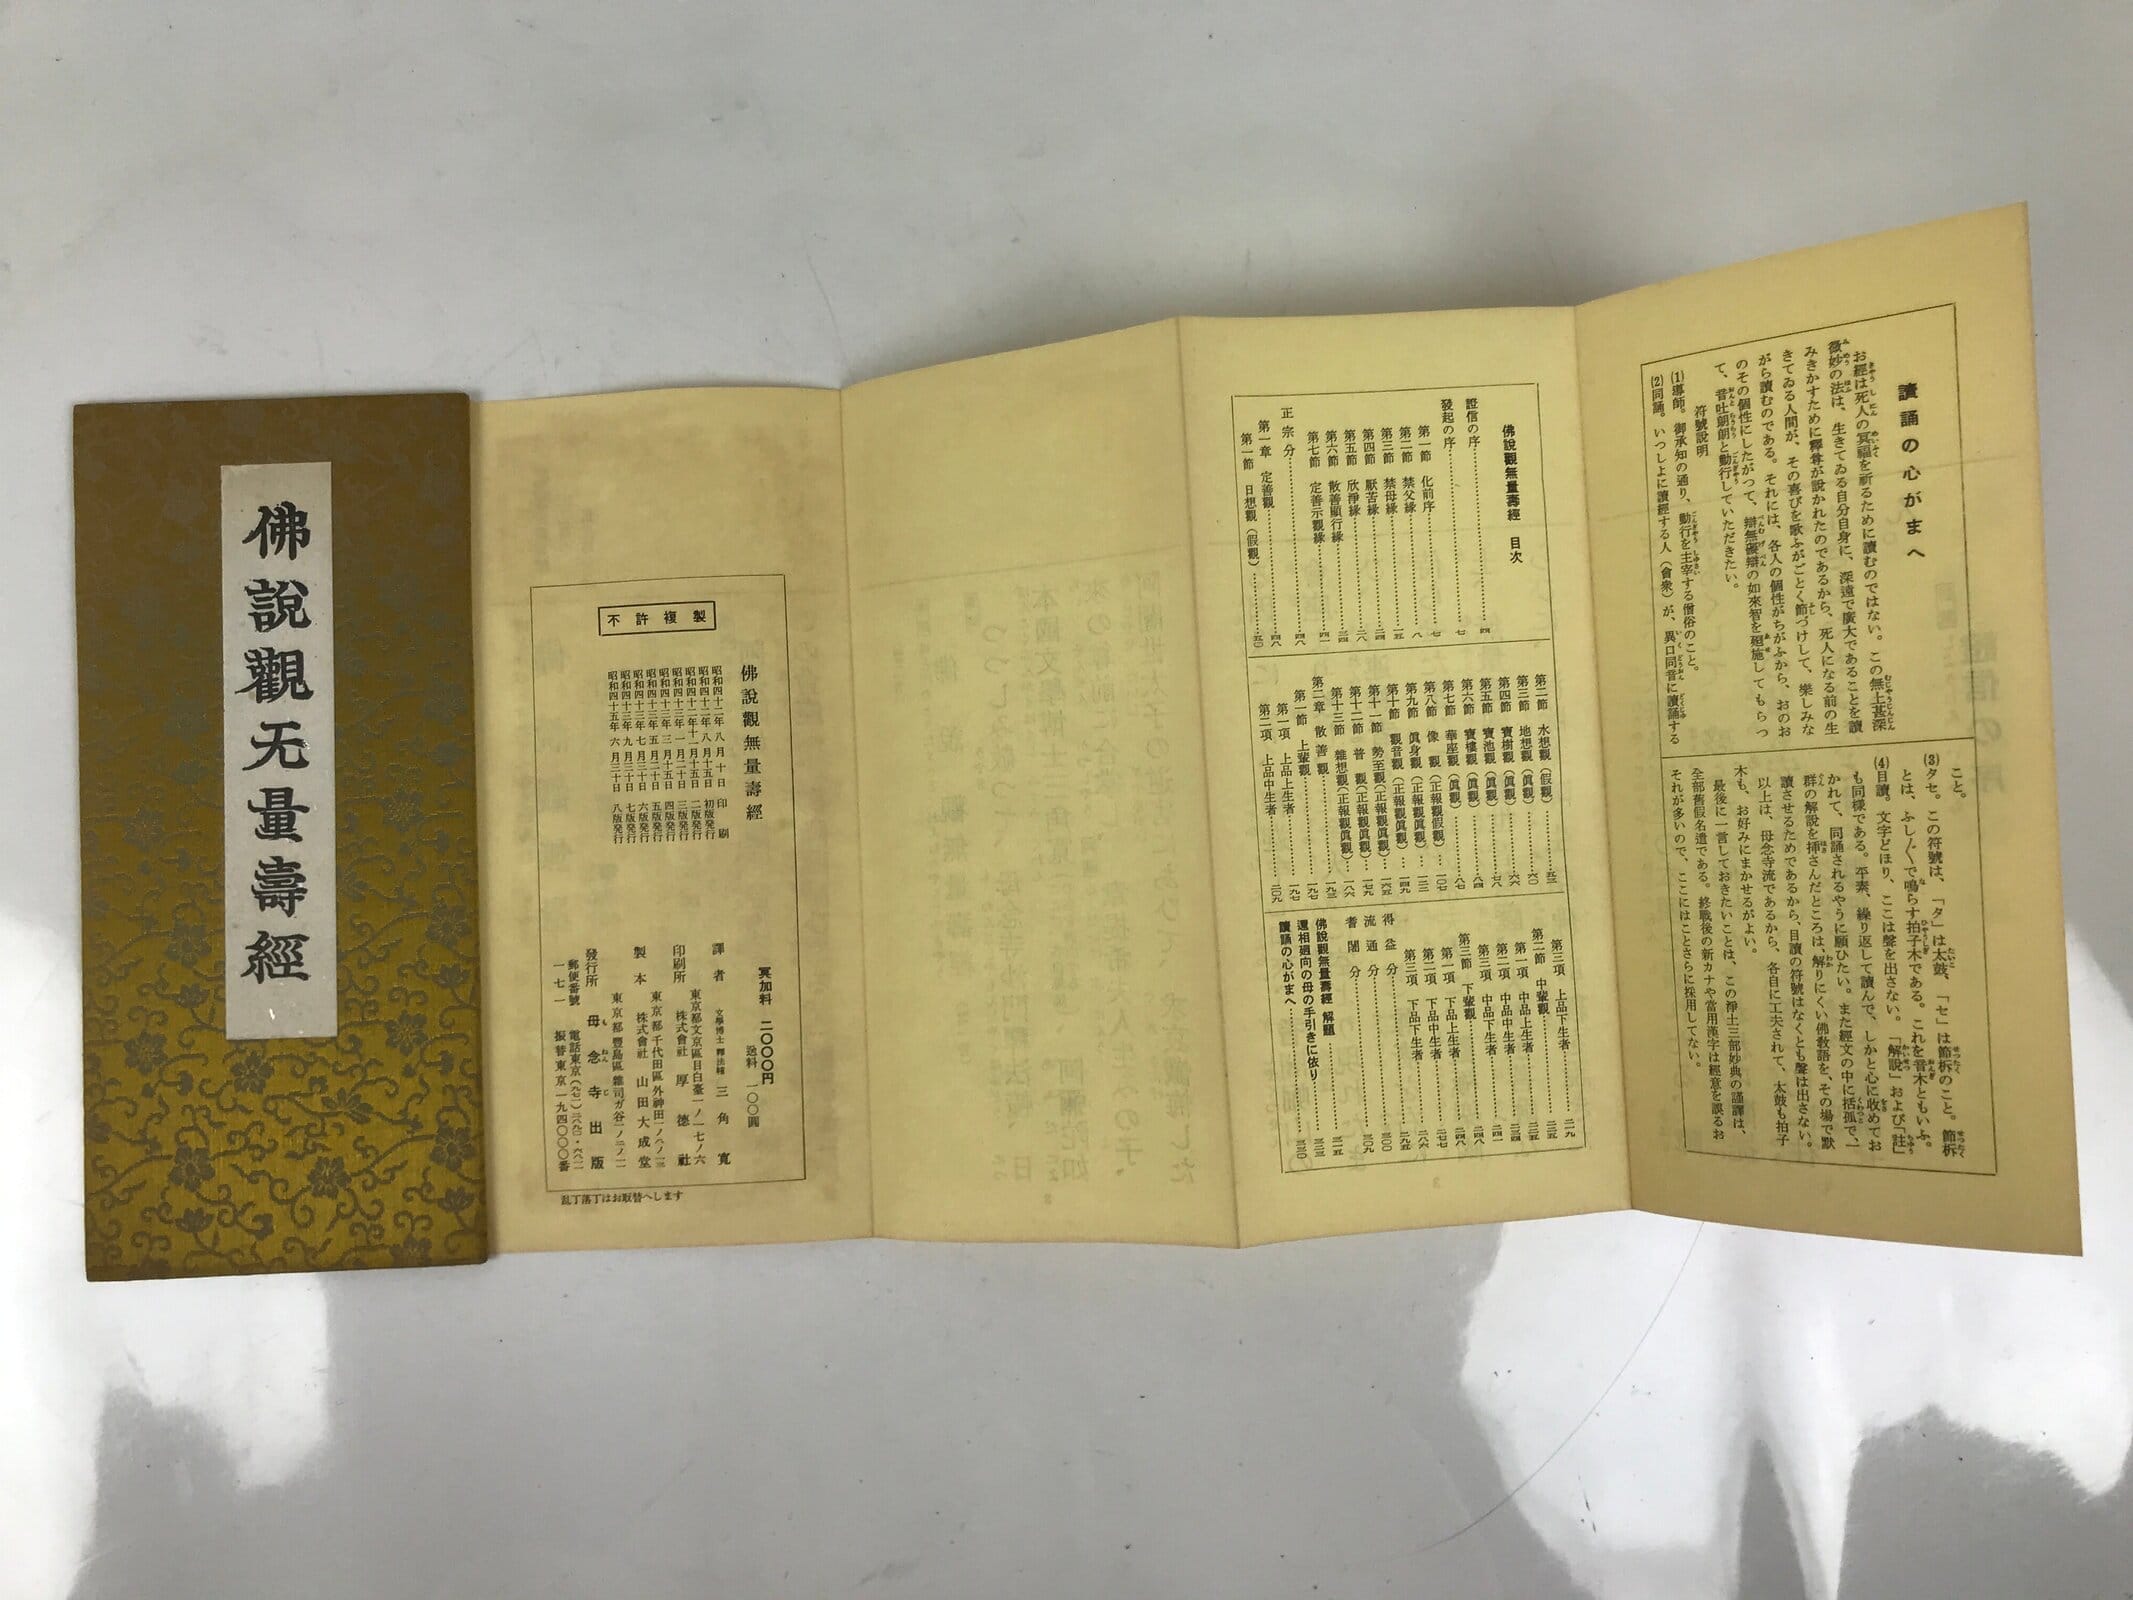 佛說觀无量壽經
讀誦の心がまへ
お經は死人の冥福を祈るために讀むのではない。この無上甚深
微妙の法は、生きてゐる自分自身に、深遠で廣大であることを讀
みきかすために釋尊が說かれたのであるから、死人になる前の生
きてゐる人間が、その喜びを歌ふがごとく節づけして、樂しみな
がら讀むのである。それには、各人の個性がちがふから、おのお
のその個性にしたがつて、辯無礙辯の如來智を廻施してもらつ
て、音吐朗朗と勤行していただきたい。
符號說明
(1)導師。御承知の通り、勤行を主宰する僧俗のこと。
(2)同誦。いつしよに讀經する人（會衆）が、異口同音に讀誦する
こと。
(3)タセ。この符號は、「タ」は太鼓、「セ」は節柝のこと。節柝
とは、ふしぶしで鳴らす拍子木である。これを音木ともいふ。
(4)目讀。文字どほり、ここは聲を出さない。「解說」および「註」
も同樣である。平素、繰り返して讀んで、しかと心に收めてお
かれて、同誦されるやうに願ひたい。また經文の中に括弧で、一
群の解說を挿さんだところは、解りにくい佛教語を、その場で默
讀させるためであるから、目讀の符號はなくとも聲は出さない。
以上は、母念寺流であるから、各自に工夫されて、太鼓も拍子
木も、お好みにまかせるがよい。
最後に一言しておきたいことは、この淨土三部妙典の謹譯は、
全部舊假名遣である。終戰後の新カナや當用漢字は經意を誤るお
それが多いので、ここにはことさらに採用してない。
佛說觀無量壽經 目次
證信の序……四
發起の序……七
第一節 化前序……七
第二節 禁父緣……八
第三節 禁母緣……一五
第四節 厭苦緣……二四
第五節 欣淨緣……二八
第六節 散善顯行緣……三四
第七節 定善示觀緣……四一
正宗分……四八
第一章 定善觀……四八
第一節 日想觀（假觀）……五〇
第二節 水想觀（假觀）……五三
第三節 地想觀（眞觀）……六〇
第四節 寶樹觀（眞觀）……六六
第五節 寶池觀（眞觀）……七八
第六節 寶樓觀（眞觀）……八四
第七節 華座觀（眞觀）……八七
第八節 像觀（正報觀假觀）……一〇七
第九節 眞身觀（正報觀眞觀）……一二三
第十節 觀音觀（正報觀眞觀）……一四九
第十一節 勢至觀（正報觀眞觀）……一六五
第十二節 普觀（正報觀眞觀）……一七九
第十三節 雜想觀（正報觀眞觀）……一八六
第二章 散善觀……一九三
第一節 上輩觀……一九七
第一項 上品上生者……一九七
第二項 上品中生者……二〇九
第三項 上品下生者……二一九
第二節 中輩觀……二二五
第一項 中品上生者……二二五
第二項 中品中生者……二三四
第三項 中品下生者……二四一
第三節 下輩觀……二四八
第一項 下品上生者……二四八
第二項 下品中生者……二七七
第三項 下品下生者……二八六
得益分……二九五
流通分……三〇〇
耆闍分……三〇九
佛說觀無量壽經 解題……三一五
還相廻向の母の手引きに依り……三二三
讀誦の心がまへ……三三〇
3
不許複製
佛說觀無量壽經
昭和四十二年 八月 十日 印刷
昭和四十二年 八月十五日 初版発行
昭和四十二年十一月十五日 二版発行
昭和四十三年 一月二十日 三版発行
昭和四十三年 三月十五日 四版発行
昭和四十三年 五月二十日 五版発行
昭和四十三年 七月三十日 六版発行
昭和四十三年 九月三十日 七版発行
昭和四十五年 六月三十日 八版発行
冥加料 二〇〇〇円
送料 一〇〇圓
譯者 文學博士 釋法幢 三角寬
東京都文京區目白臺一ノ一七ノ六
印刷所 株式會社 厚德社
東京都千代田區外神田一ノ八ノ一三
製本 株式會社 山田大成堂
東京都豐島區雜司ガ谷一ノ二ノ一二
發行所 母念寺出版
郵便番號 一七一
電話東京(九七一)二六九〇・六八一一
振替東京一九四〇〇〇番
乱丁落丁はお取替へします